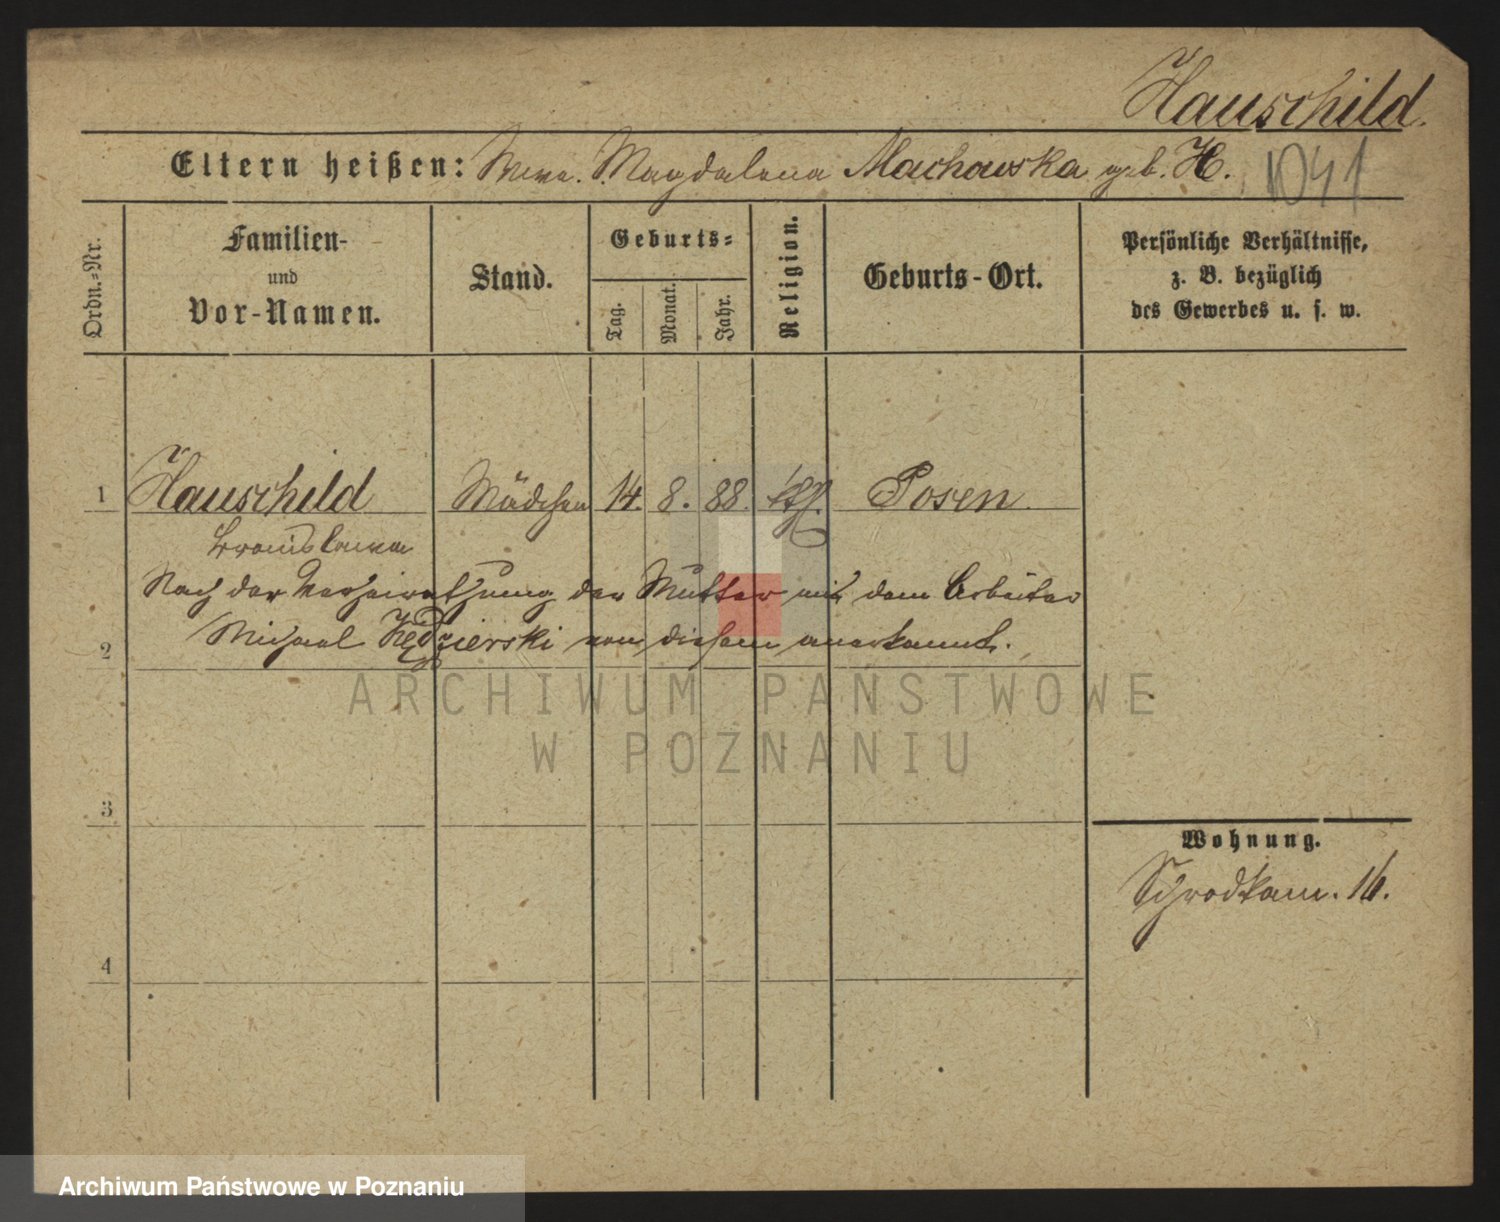 Hauschild.
Eltern heißen: Wwe. Magdalena Machowska geb. H. 1041
Ordn.-Nr.
Familien-
und
Vor-Namen.
Stand.
Geburts-
Tag.
Monat.
Jahr.
Religion.
Geburts-Ort.
Persönliche Verhältnisse,
z. B. bezüglich
des Gewerbes u. s. w.
1 Hauschild Mädchen 14. 8. 88. kth. Posen.
Bronislawa
Nach der Verheirathung der Mutter mit dem Arbeiter
2 Michael Kędzierski von diesem anerkannt.
ARCHIWUM PAŃSTWOWE
W POZNANIU
3
Wohnung.
Schrodkam. 16.
4
Archiwum Państwowe w Poznaniu